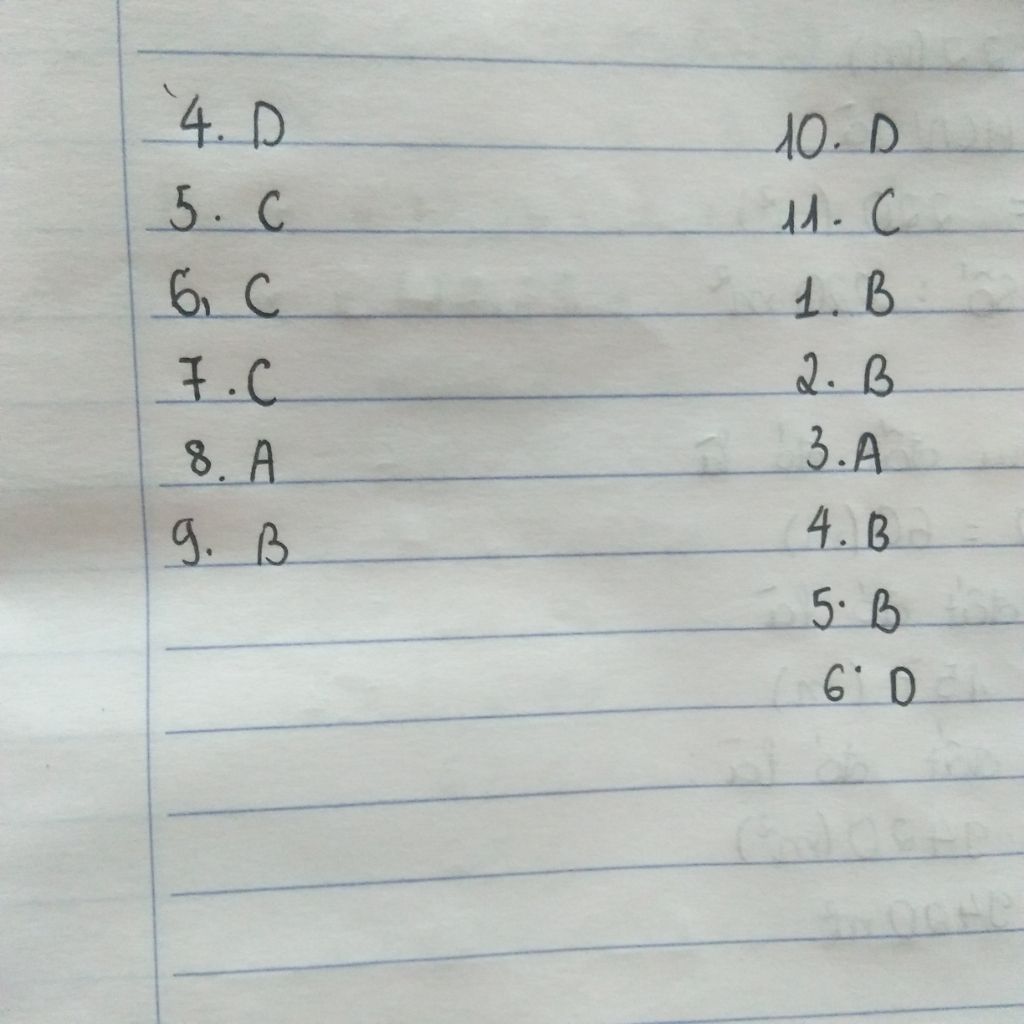 4. D
5. C
6, C
7. C
8. A
9. B
10. D
11. C
1. B
2. B
3. A
4. B
5. B
6. D